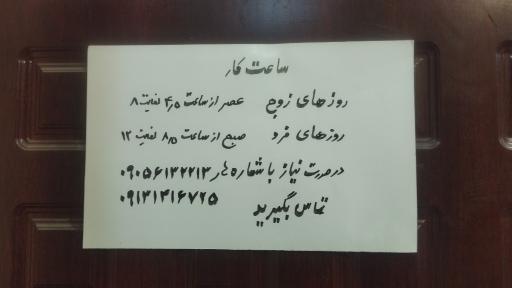 ساعت کار
روزهای زوج عصر از ساعت ۴٫۵ لغایت ۸
روزهای فرد صبح از ساعت ۸٫۵ لغایت ۱۲
در صورت نیاز با شماره های ۰۹۰۵۶۱۳۲۲۱۳
۰۹۱۳۱۴۱۶۷۲۵
تماس بگیرید